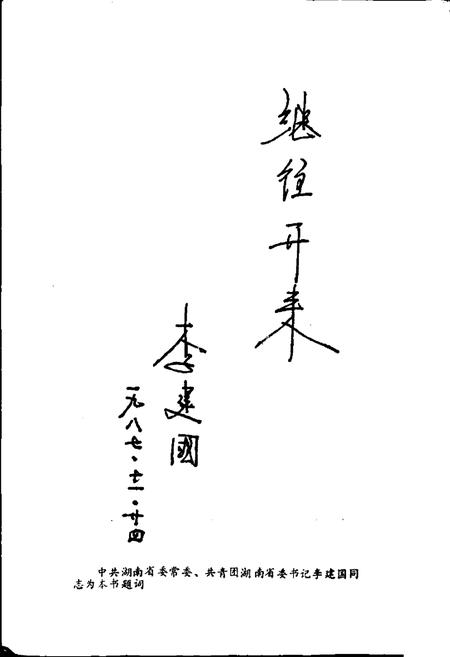 继往开来
李建國
一九八七·十一·廿四
中共湖南省委常委、共青团湖南省委书记李建国同
志为本书题词